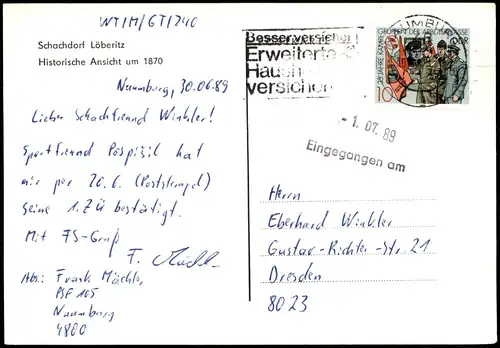 WT/M/GT/240
Schachdorf Löberitz
Historische Ansicht um 1870
Naumburg, 30.06.89
Lieber Schachfreund Winkler!
Sportfreund Pospišil hat
mir per 20.6. (Poststempel)
seine 1. ZÜ bestätigt.
Mit FS-Gruß
F.
Abs.: Frank Mächler,
PSF 165
Naumburg
4800
Besser versichert
Erweiterte
Haush
versicher
NAUMBURG
35 JAHRE KAMPFGRUPPEN DER ARBEITERKLASSE
DDR
10
- 1. 07. 89
Eingegangen am
Herrn
Eberhard Winkler
Gustav-Richter-Str. 21
Dresden
8023